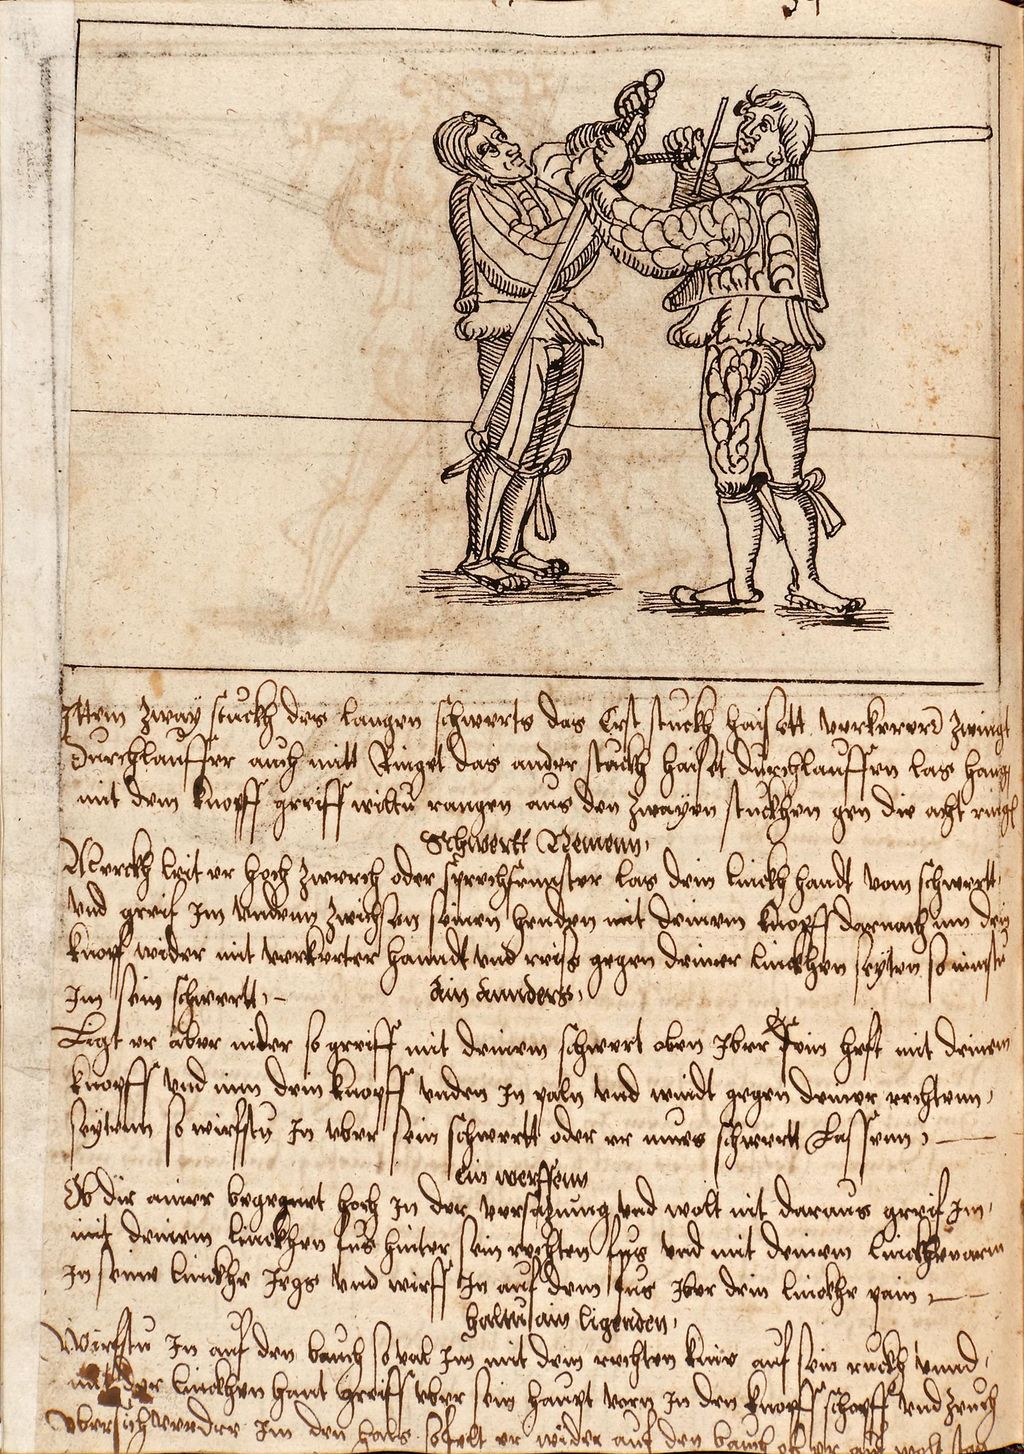 Ittem zway stuckh des langen schwerts das Erst stuckh haisett verkerer zwingt
Durchlauffer auch mitt Ringet das ander stuckh haiset durchlauffen las hang
mit dem knopff greiff wiltu rangen aus den zwayen stuckhen gen die acht ring
Schwertt Nemenn,
Merckh leit er hoch zwerch oder sprechfennster las dein linckh handt vom schwertt,
vnd greif Im vndenn zwischen seinen henden mit deinem knopff darnach nim dein
knopf wider mit verkerter hanndt vnd reiss gegen deiner linckhen seyten so nimstu
Im sein schwertt,
Ain annders,
Ligt er aber nider so greiff mit deinem schwert oben Iber sein heft mit deinem
knopff vnd nim dein knopff vnden In paln vnd windt gegen deiner rechtenn,
seytenn so wirfstu In vber sein schwertt oder er mues schwertt Lassenn,
Ein werffenn
Ob dir ainer begegnet hoch In der versatzung vnd wolt nit daraus greif Im,
mit deinem linckhen fus hinter sein rechten fus vnd mit deinem linckhenarm
In seine linckhe Irgs vnd wirff In auf dem fus Iber dein linckhe pain,
haltus ain ligenden,
Wirfstu In auf den bauch so val Im mit dem rechten knie auf sein ruckh vnnd,
mit der linckhen hant greiff vber sein haupt vorn In den knopff schopff vnd zeuch
vbersich Im den hals so felt er wider auf den bauch ob er auf wolt stan